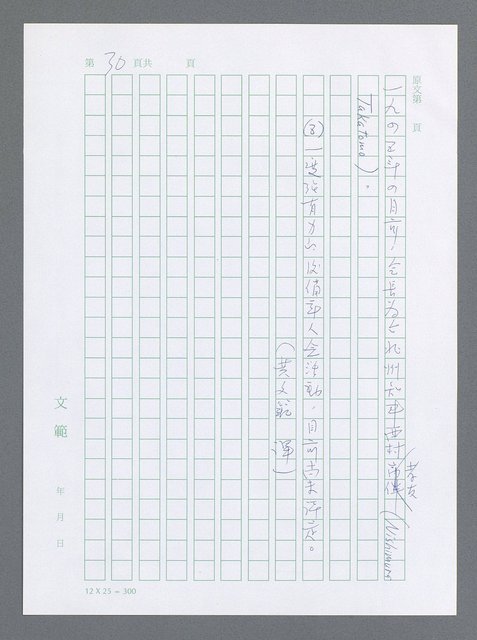 第 30 頁共 頁
原文第 頁
一九四五年四月前，会長為占北州知事西村 孝友 (Nishimura
Takatomo)。
(3) 一度強有力的後備軍人会活動，目前尚未評定。
(黃文範 譯)
文範
年 月 日
12 X 25 = 300